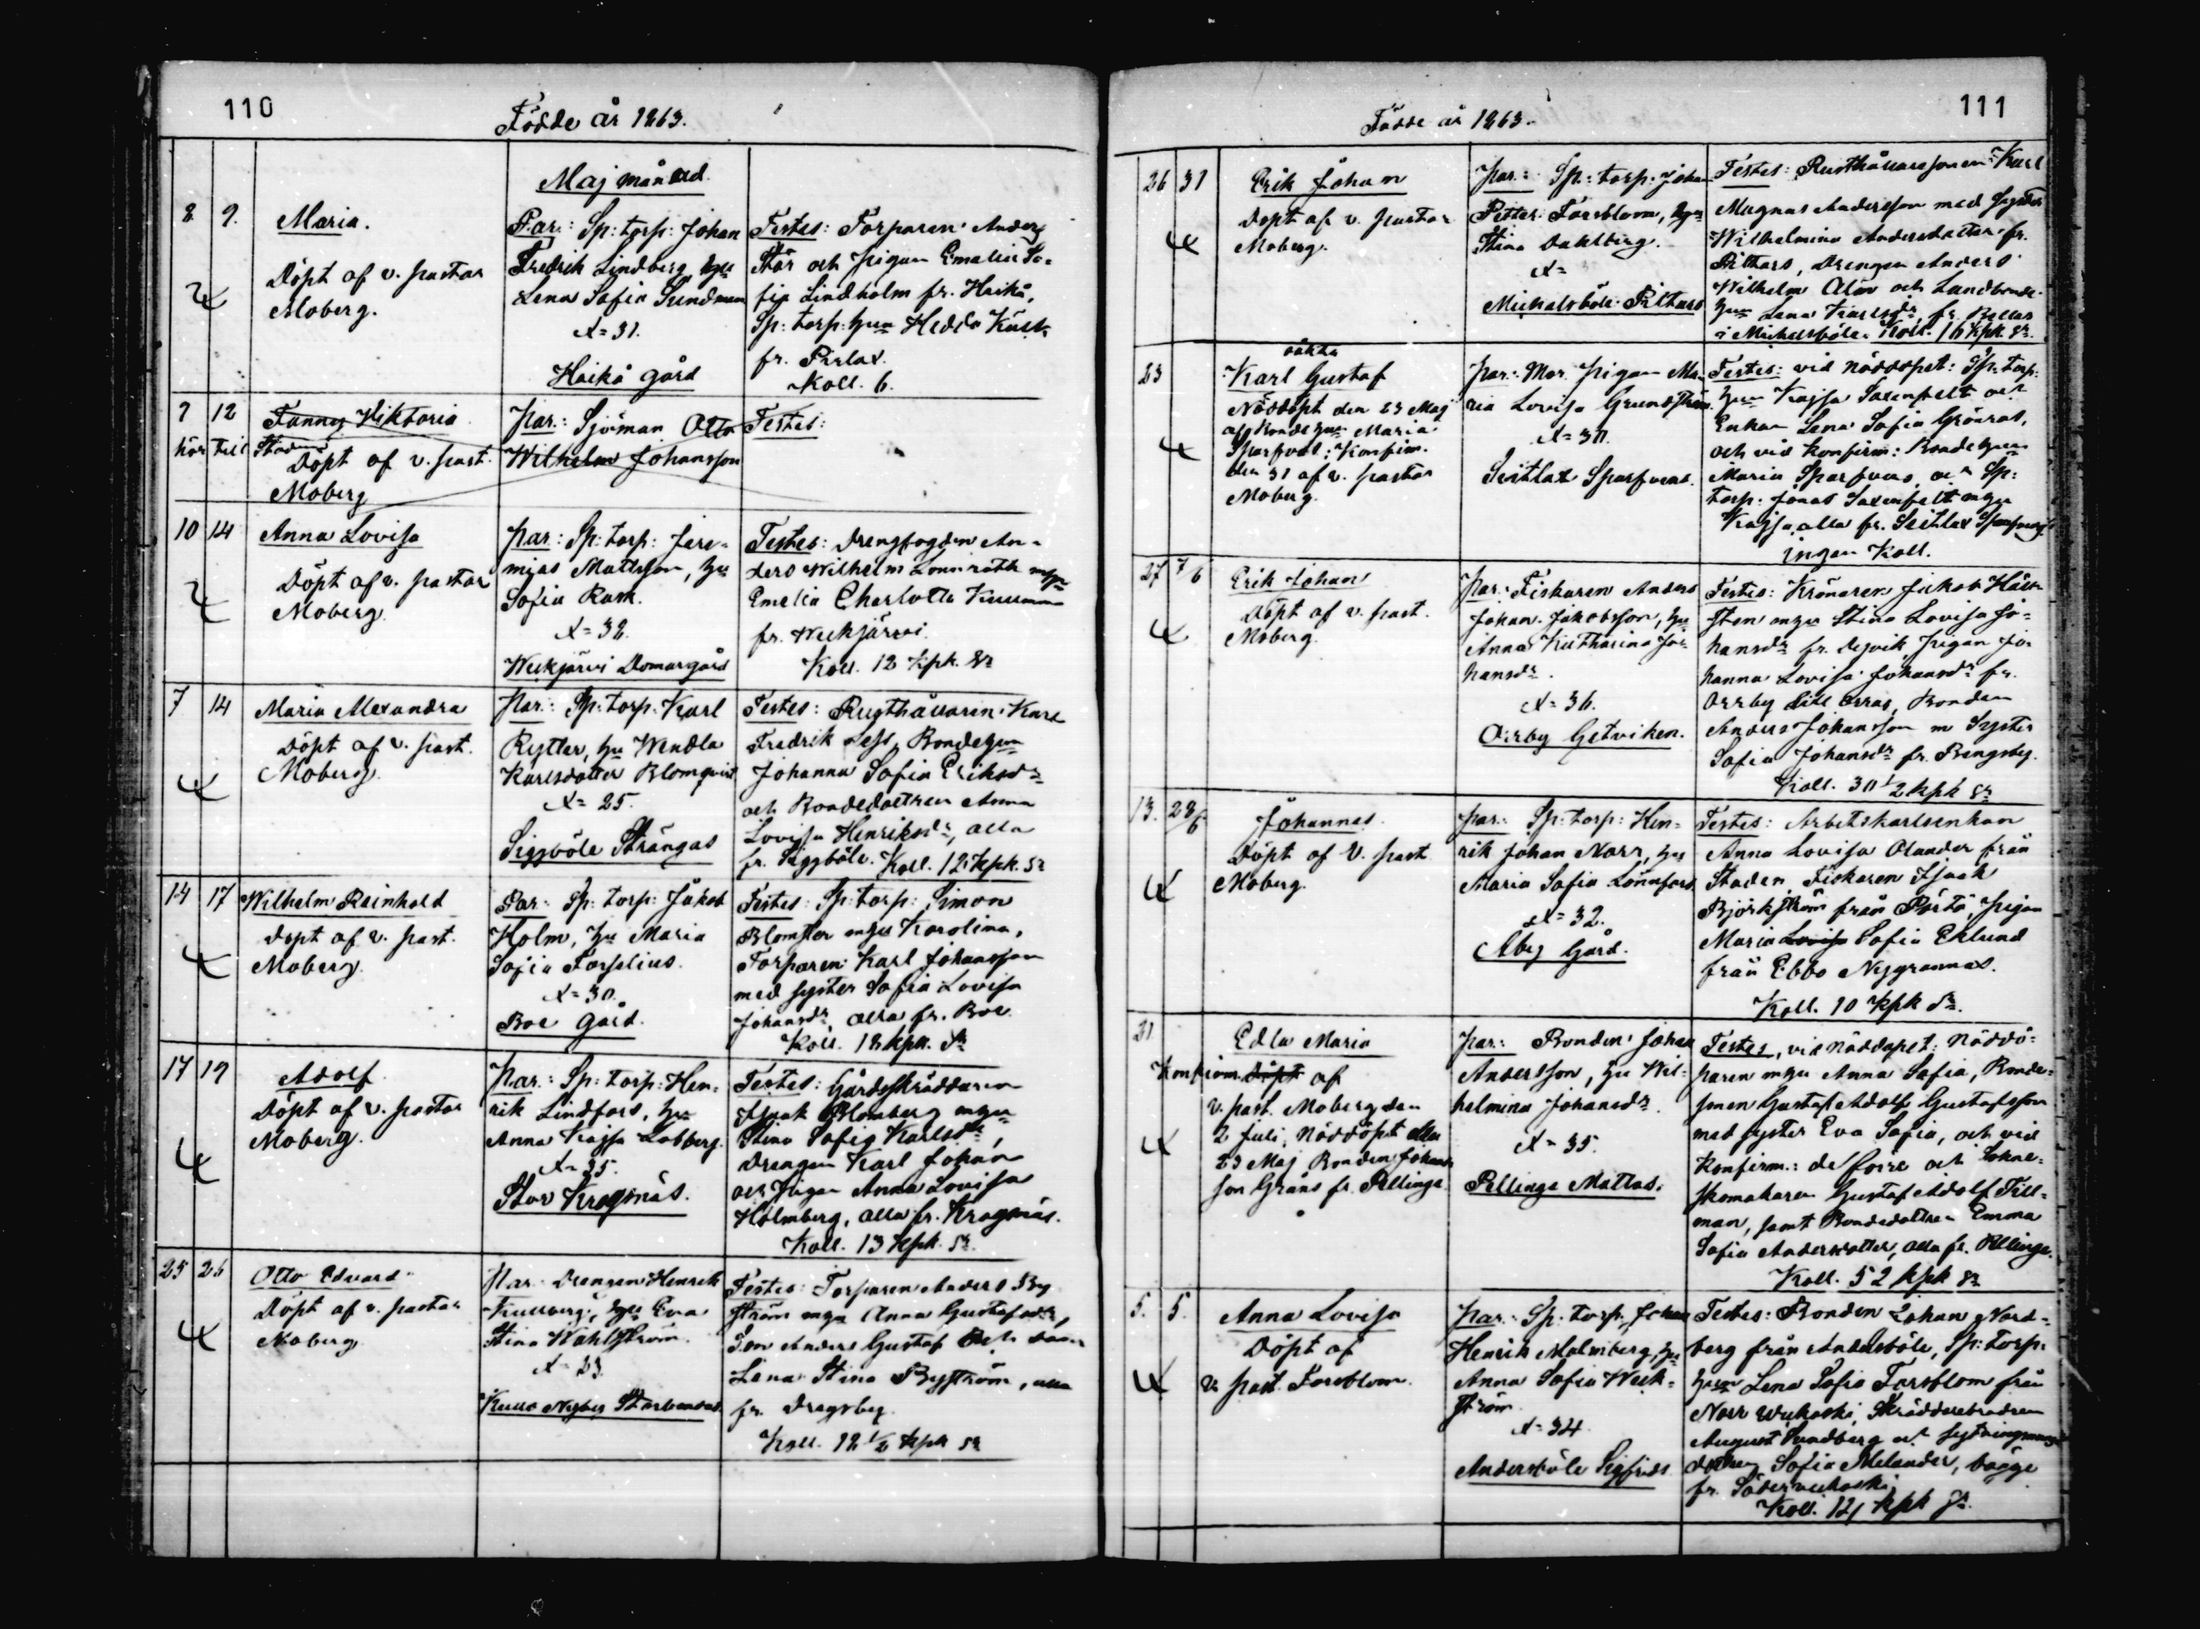 110
Födde år 1863.
Maj månad.
8 9.
Maria.
Döpt af v. pastor
Moberg.
Par: Sp: torp: Johan
Fredrik Lindberg, hu
Lena Sofia Sundman
x= 31.
Haikå gård
Testes: Torparen Anders
Stör och pigan Emelie So-
fia Lindholm fr. Haikå,
Sp: torp: hun Hedda
fr. Pirlax.
Koll. 6.
7 12
hör till Staden
Fanny Viktoria
Döpt af v. past.
Moberg
Par: Sjöman Otto
Wilhelm Johansson
Testes:
10 14
Anna Lovisa
Döpt af v. pastor
Moberg.
Par: Sp: torp: Jere-
mias Mattsson, hu
Sofia Rask.
x= 38.
Wekjärvi Domargård
Testes: Drengfogden An-
ders Wilhelm Lönnroth mhu
Emelia Charlotta
fr. Wekjärvi.
Koll. 12 kpk. Sr
7 14
Maria Alexandra
Döpt af v. past.
Moberg.
Par: Sp: torp: Karl
Rytter, hu Wendla
Karlsdotter Blomqvist
x= 25.
Siggböle Strångas
Testes: Rusthållaren Karl
Fredrik Less, Bondehun
Johanna Sofia Eriksdr
och Bondedottren Anna
Lovisa Henriksdr, alla
fr. Siggböle. Koll. 12 kpk. Sr
14 17
Wilhelm Reinhold
Döpt af v. past.
Moberg.
Par: Sp: torp: Jakob
Holm, hu Maria
Sofia Forselius.
x= 30.
Boe Gård.
Testes: Sp: torp: Simon
Blomster mhu Karolina,
Torparen Karl Johansson
med syster Sofia Lovisa
Johansdr, alla fr. Boe
Koll. 18 kpk. Sr
17 19
Adolf
Döpt af v. pastor
Moberg.
Par: Sp: torp: Hen-
rik Lindfors, hu
Anna Kajsa Lobberg.
x= 35.
Stor Kroksnäs.
Testes: Gårdsskräddaren
Isaak Blomberg mhu
Stina Sofia Karlsdr,
Drengen Karl Johan
och Pigan Anna Lovisa
Holmberg, alla fr. Kroksnäs.
Koll. 13 kpk. Sr.
25 26
Otto Edvard
Döpt af v. pastor
Moberg
Par: Drengen Henrik
hu Eva
Stina Wahlström.
x= 23
Testes: Torparen Anders By-
ström mhu Anna Gustafsdr,
Son Anders Gustaf och
Lena Stina Byström, alla
fr. Dragsby.
Koll. 12 1/2 kpk Sr
111
Födde år 1863.
26 31
Erik Johan
Döpt af v. pastor
Moberg.
Par: Sp: torp: Johan
Petter Forsblom, hun
Stina Dahlberg.
x=
Mickelsböle Pittars
Testes: Rusthållaresonen Karl
Magnus Andersson med Syster
Wilhelmina Andersdotter fr.
Pittars, Drengen Anders
Wilhelm Alm och Landbonde-
hun Lena
i Mickelsböle. Koll. 16 kpk Sr.
23
oäkta
Karl Gustaf
Nöddöpt den 23 Maj
af Bondehun Maria
Konfirm.
den 31 af v. pastor
Moberg.
Par: Mor. Pigan Ma-
ria Lovisa Grundström.
x= 30.
Seitlax Sparfvens.
Testes: vid nöddopet: Sp: torp:
hun Kajsa Saxenfelt och
Enkan Lena Sofia Grönros,
och vid konfirm: Bondehun
Maria Sparfvens, och Sp:
torp: Jonas Saxenfelt mhu
Kajsa, alla fr. Seitlax
ingen Koll.
27 7/6
Erik Johan
Döpt af v. past.
Moberg.
Par: Fiskaren Anders
Johan Jakobsson, hu
Anna Katharina Jo-
hansdr.
x= 36.
Orrby Getviken.
Testes: Krönaren Jakob
mhu Stina Lovisa Jo-
hansdr fr. Pigan Jo-
hanna Lovisa Johansdr fr.
Orrby Lill Orras, Bonden
Anders Johansson m Syster
Sofia Johansdr fr. Bengsby.
Koll. 30 1/2 kpk Sr
13. 28/6
Johannes
Döpt af v. past
Moberg.
Par: Sp: torp: Hen-
rik Johan Norr, hu
Maria Sofia Lönnfors
x= 32.
Åby Gård.
Testes: Arbetskarlsenkan
Anna Lovisa Olander från
Staden, Fiskaren Isaak
Björkström från Pörtö, Pigan
Maria Lovisa Sofia Eklund
från Ebbo Nygrannas.
Koll. 10 kpk Sr.
21
Edla Maria
Konfirm. Döpt af
v. past. Moberg den
2 Juli, Nöddöpt den
23 Maj Bonden Johans-
son Gräns fr. Pellinge
Par: Bonden Johan
Andersson, hu Wil-
helmina Johansdr.
x= 35.
Pellinge Mattas.
Testes, vid nöddopet: Nöddö-
paren mhu Anna Sofia, Bonde-
sonen Gustaf Adolf Gustafsson
med syster Eva Sofia, och vid
Konfirm.: de förre och Sokne-
skomakaren Gustaf Adolf Till-
man, samt Bondedottren Emma
Sofia Andersdotter, alla fr. Pellinge.
Koll. 52 kpk Sr
5. 5.
Anna Lovisa
Döpt af
v. past. Forsblom.
Par: Sp: torp: Johan
Henrik Malmberg, hu
Anna Sofia Weck-
ström.
x= 34
Andersböle Sigfrids
Testes: Bonden Johan Nord-
berg från Andersböle, Sp: torp:
hun Lena Sofia Forsblom från
Norr Weckoski, Skräddarebrodren
August Sundberg och
Sofia Melander, bägge
fr. Söderveckoski
Koll. 12 kpk Sr.